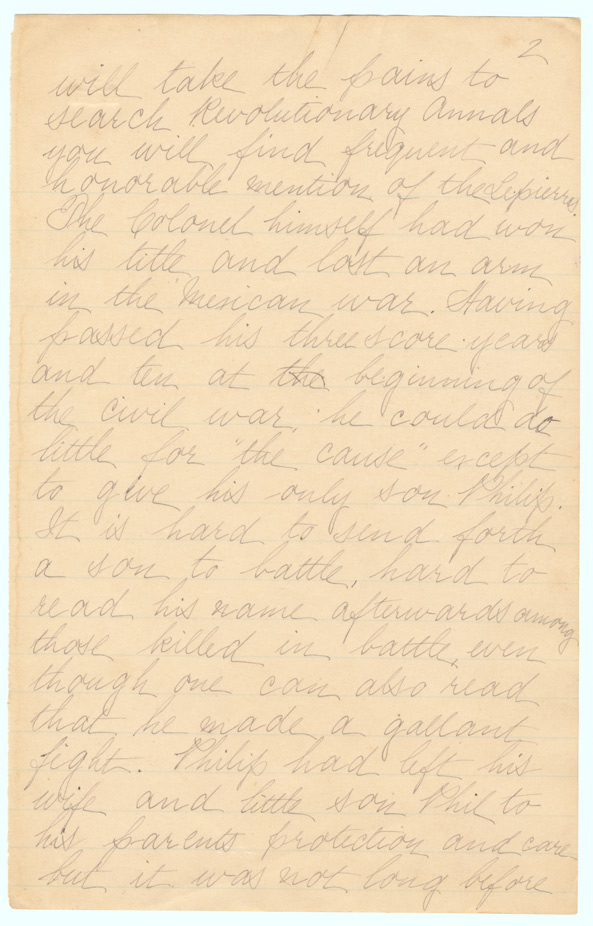 2
will take the pains to
search Revolutionary Annals
you will find frequent and
honorable mention of the Lepierres.
The Colonel himself had won
his title and lost an arm
in the Mexican war. Having
passed his three score years
and ten at the beginning of
the civil war, he could do
little for "the cause" except
to give his only son Philip.
It is hard to send forth
a son to battle, hard to
read his name afterwards among
those killed in battle, even
though one can also read
that he made a gallant
fight. Philip had left his
wife and little son Phil to
his parents protection and care
but it was not long before